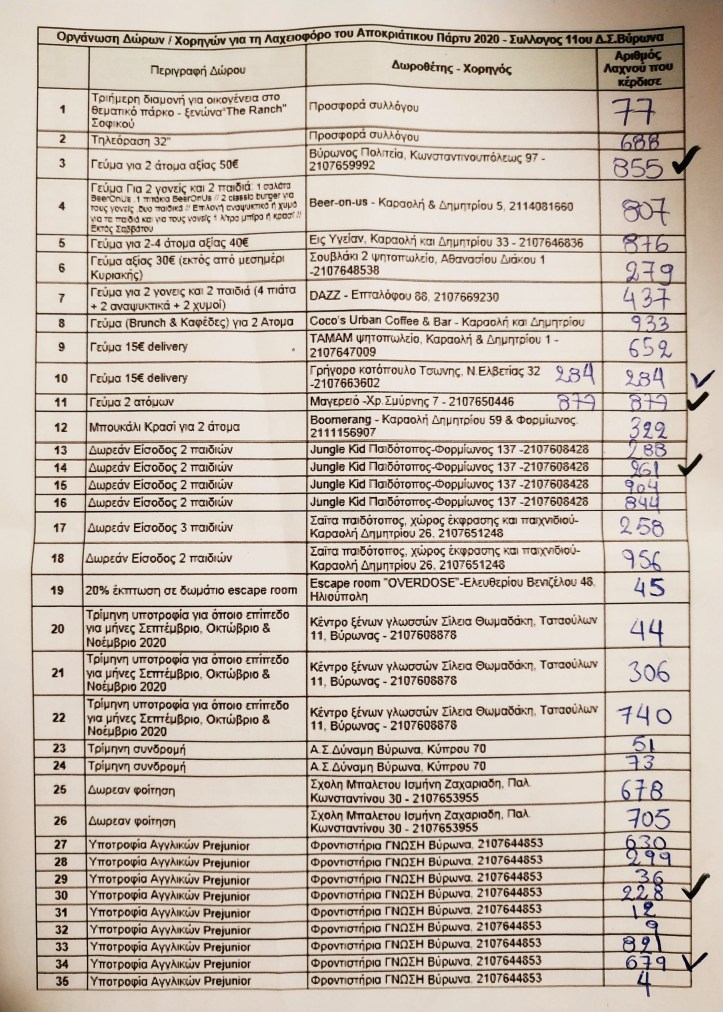 Οργάνωση Δώρων / Χορηγών για τη Λαχειοφόρο του Αποκριάτικου Πάρτυ 2020 - Συλλογος 11ου Δ.Σ.Βύρωνα
Περιγραφή Δώρου Δωροθέτης - Χορηγός Αριθμός Λαχνού που κέρδισε
1 Τριήμερη διαμονή για οικογένεια στο Προσφορά συλλόγου 77
θεματικό πάρκο - ξενώνα"The Ranch"
Σοφικού
2 Τηλεόραση 32" Προσφορά συλλόγου 688
3 Γεύμα για 2 άτομα αξίας 50€ Βύρωνος Πολιτεία, Κωνσταντινουπόλεως 97 - 855
2107659992
4 Γεύμα Για 2 γονείς και 2 παιδιά: 1 σαλάτα Beer-on-us - Καραολή & Δημητρίου 5, 2114081660 807
BeerOnUs ,1 πιτάκια BeerOnUs // 2 classic burger για
τους γονείς ,δυο παιδικά // Επιλογή αναψυκτικό ή χυμό
για τα παιδιά και για τους γονείς 1 λίτρο μπίρα ή κρασί //
Εκτός Σαββάτου
5 Γεύμα για 2-4 άτομα αξίας 40€ Εις Υγείαν, Καραολή και Δημητρίου 33 - 2107646836 876
6 Γεύμα αξίας 30€ (εκτός από μεσημέρι Σουβλάκι 2 ψητοπωλείο, Αθανασίου Διάκου 1 279
Κυριακής) -2107648538
7 Γεύμα για 2 γονεις και 2 παιδιά (4 πιάτα DAZZ - Επταλόφου 88, 2107669230 437
+ 2 αναψυκτικά + 2 χυμοί)
8 Γεύμα (Brunch & Καφέδες) για 2 Ατομα Coco's Urban Coffee & Bar - Καραολή και Δημητρίου 933
9 Γεύμα 15€ delivery TAMAM ψητοπωλείο, Καραολή & Δημητρίου 1 - 652
2107647009
10 Γεύμα 15€ delivery Γρήγορο κοτόπουλο Τσωνης, Ν.Ελβετίας 32 284 284
-2107663602
11 Γεύμα 2 ατόμων Μαγερειό -Χρ.Σμύρνης 7 - 2107650446 877 877
12 Μπουκάλι Κρασί για 2 άτομα Boomerang - Καραολή Δημητρίου 59 & Φορμίωνος, 322
2111156907
13 Δωρεάν Είσοδος 2 παιδιών Jungle Kid Παιδότοπος-Φορμίωνος 137 -2107608428 288
14 Δωρεάν Είσοδος 2 παιδιών Jungle Kid Παιδότοπος-Φορμίωνος 137 -2107608428 261
15 Δωρεάν Είσοδος 2 παιδιών Jungle Kid Παιδότοπος-Φορμίωνος 137 -2107608428 904
16 Δωρεάν Είσοδος 2 παιδιών Jungle Kid Παιδότοπος-Φορμίωνος 137 -2107608428 844
17 Δωρεάν Είσοδος 3 παιδιών Σαϊτα παιδότοπος, χώρος έκφρασης και παιχνιδιού- 258
Καραολή Δημητρίου 26, 2107651248
18 Δωρεάν Είσοδος 2 παιδιών Σαϊτα παιδότοπος, χώρος έκφρασης και παιχνιδιού- 956
Καραολή Δημητρίου 26, 2107651248
19 20% έκπτωση σε δωμάτιο escape room Escape room "OVERDOSE"-Ελευθερίου Βενιζέλου 48, 45
Ηλιούπολη
20 Τρίμηνη υποτροφία για όποιο επίπεδο Κέντρο ξένων γλωσσών Σίλεια Θωμαδάκη, Ταταούλων 44
για μήνες Σεπτέμβριο, Οκτώβριο & 11, Βύρωνας - 2107608878
Νοέμβριο 2020
21 Τρίμηνη υποτροφία για όποιο επίπεδο Κέντρο ξένων γλωσσών Σίλεια Θωμαδάκη, Ταταούλων 306
για μήνες Σεπτέμβριο, Οκτώβριο & 11, Βύρωνας - 2107608878
Νοέμβριο 2020
22 Τρίμηνη υποτροφία για όποιο επίπεδο Κέντρο ξένων γλωσσών Σίλεια Θωμαδάκη, Ταταούλων 740
για μήνες Σεπτέμβριο, Οκτώβριο & 11, Βύρωνας - 2107608878
Νοέμβριο 2020
23 Τρίμηνη συνδρομή Α.Σ Δύναμη Βύρωνα, Κύπρου 70 51
24 Τρίμηνη συνδρομή Α.Σ Δύναμη Βύρωνα, Κύπρου 70 73
25 Δωρεαν φοίτηση Σχολη Μπαλετου Ισμήνη Ζαχαριαδη, Παλ. 678
Κωνσταντίνου 30 - 2107653955
26 Δωρεαν φοίτηση Σχολη Μπαλετου Ισμήνη Ζαχαριαδη, Παλ. 705
Κωνσταντίνου 30 - 2107653955
27 Υποτροφία Αγγλικών Prejunior Φροντιστήρια ΓΝΩΣΗ Βύρωνα, 2107644853 630
28 Υποτροφία Αγγλικών Prejunior Φροντιστήρια ΓΝΩΣΗ Βύρωνα, 2107644853 299
29 Υποτροφία Αγγλικών Prejunior Φροντιστήρια ΓΝΩΣΗ Βύρωνα, 2107644853 36
30 Υποτροφία Αγγλικών Prejunior Φροντιστήρια ΓΝΩΣΗ Βύρωνα, 2107644853 228
31 Υποτροφία Αγγλικών Prejunior Φροντιστήρια ΓΝΩΣΗ Βύρωνα, 2107644853 12
32 Υποτροφία Αγγλικών Prejunior Φροντιστήρια ΓΝΩΣΗ Βύρωνα, 2107644853 9
33 Υποτροφία Αγγλικών Prejunior Φροντιστήρια ΓΝΩΣΗ Βύρωνα, 2107644853 821
34 Υποτροφία Αγγλικών Prejunior Φροντιστήρια ΓΝΩΣΗ Βύρωνα, 2107644853 679
35 Υποτροφία Αγγλικών Prejunior Φροντιστήρια ΓΝΩΣΗ Βύρωνα, 2107644853 4